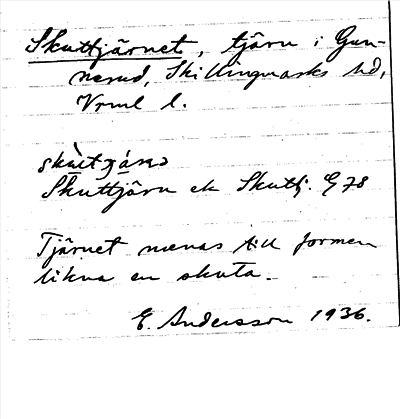 Skuttjärnet, tjärn i Gun-
nerud, Skillingmarks sd,
Vrml l.
Skuttjärn ek Skuttj. G 78
Tjärnet menas till formen
likna en skuta.
E. Andersson 1936.